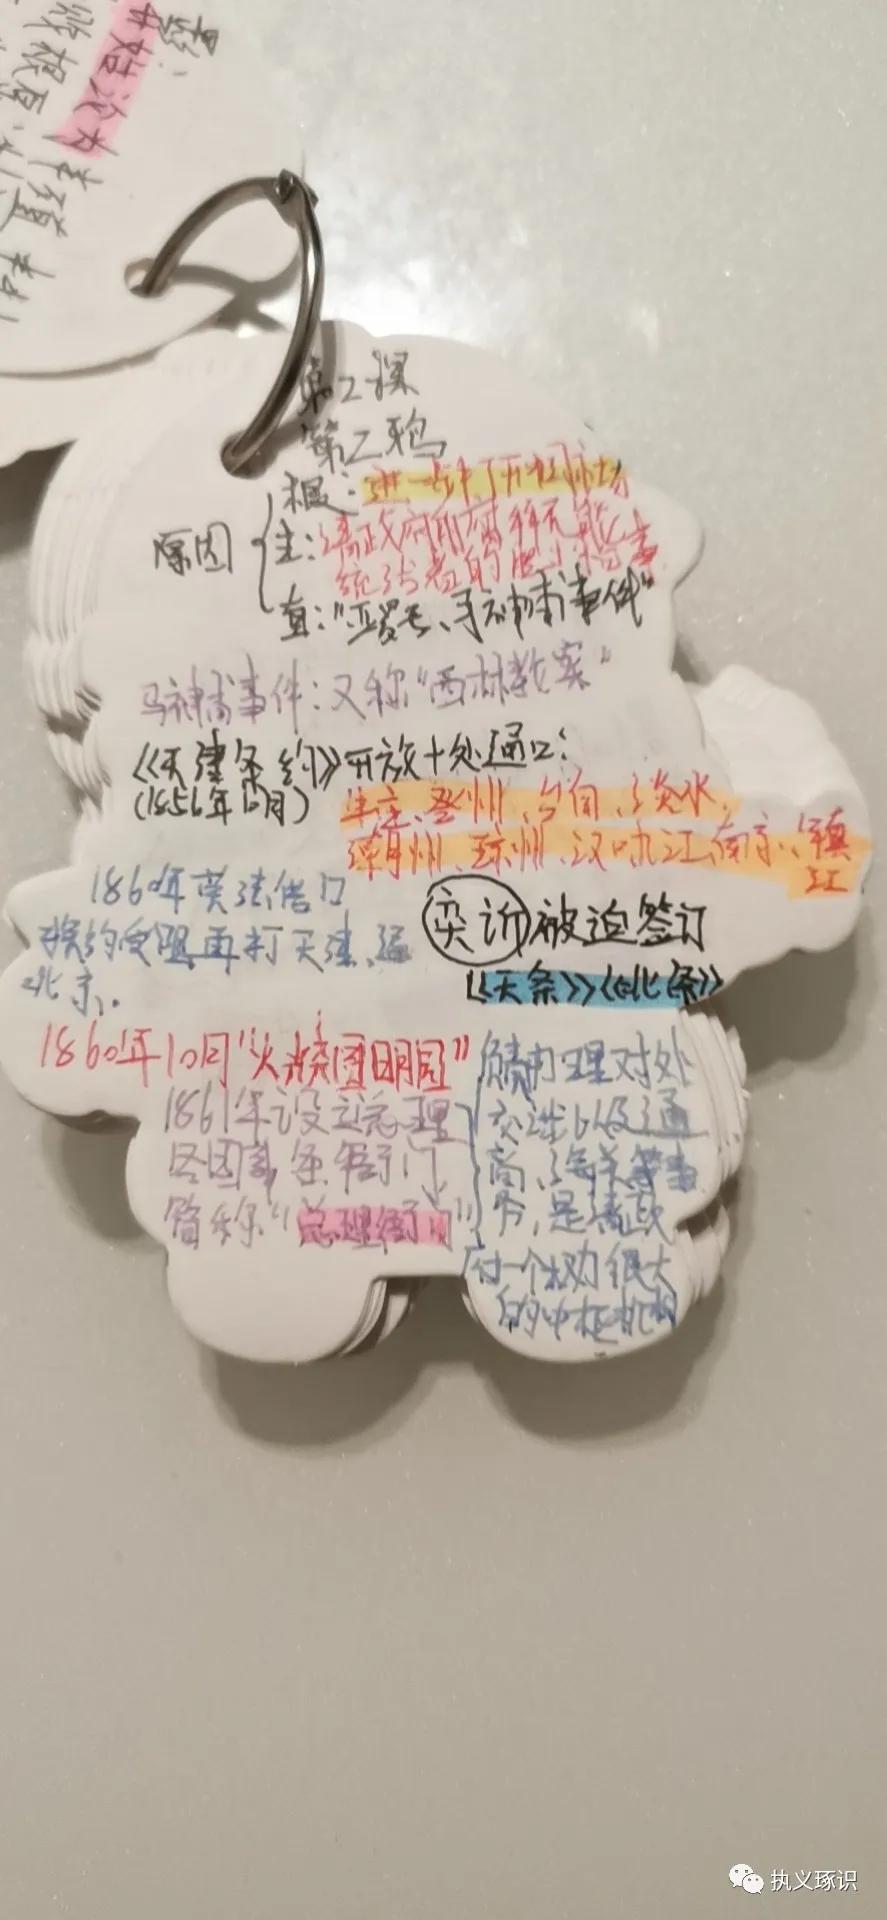 第二课
第二鸦
原因
根：进一步打开中国市场
主：清政府的腐朽无能
统治者的
直："亚罗号、马神甫事件"
马神甫事件：又称"西林教案"
《天津条约》开放十处通口：
(1856年6月)
牛庄、登州、台南、淡水、
潮州、琼州、汉口、九江、南京、镇
江
1860年英法借口
换约受阻再打天津、逼
北京。
奕䜣被迫签订
《天条》《北条》
1860年10月"火烧圆明园"
1861年设立总理
各国事务衙门
简称"总理衙门"
负责办理对外
交涉以及通
商、海关等事
务，是清政
府一个权力很大
的中枢机构
执义琢识